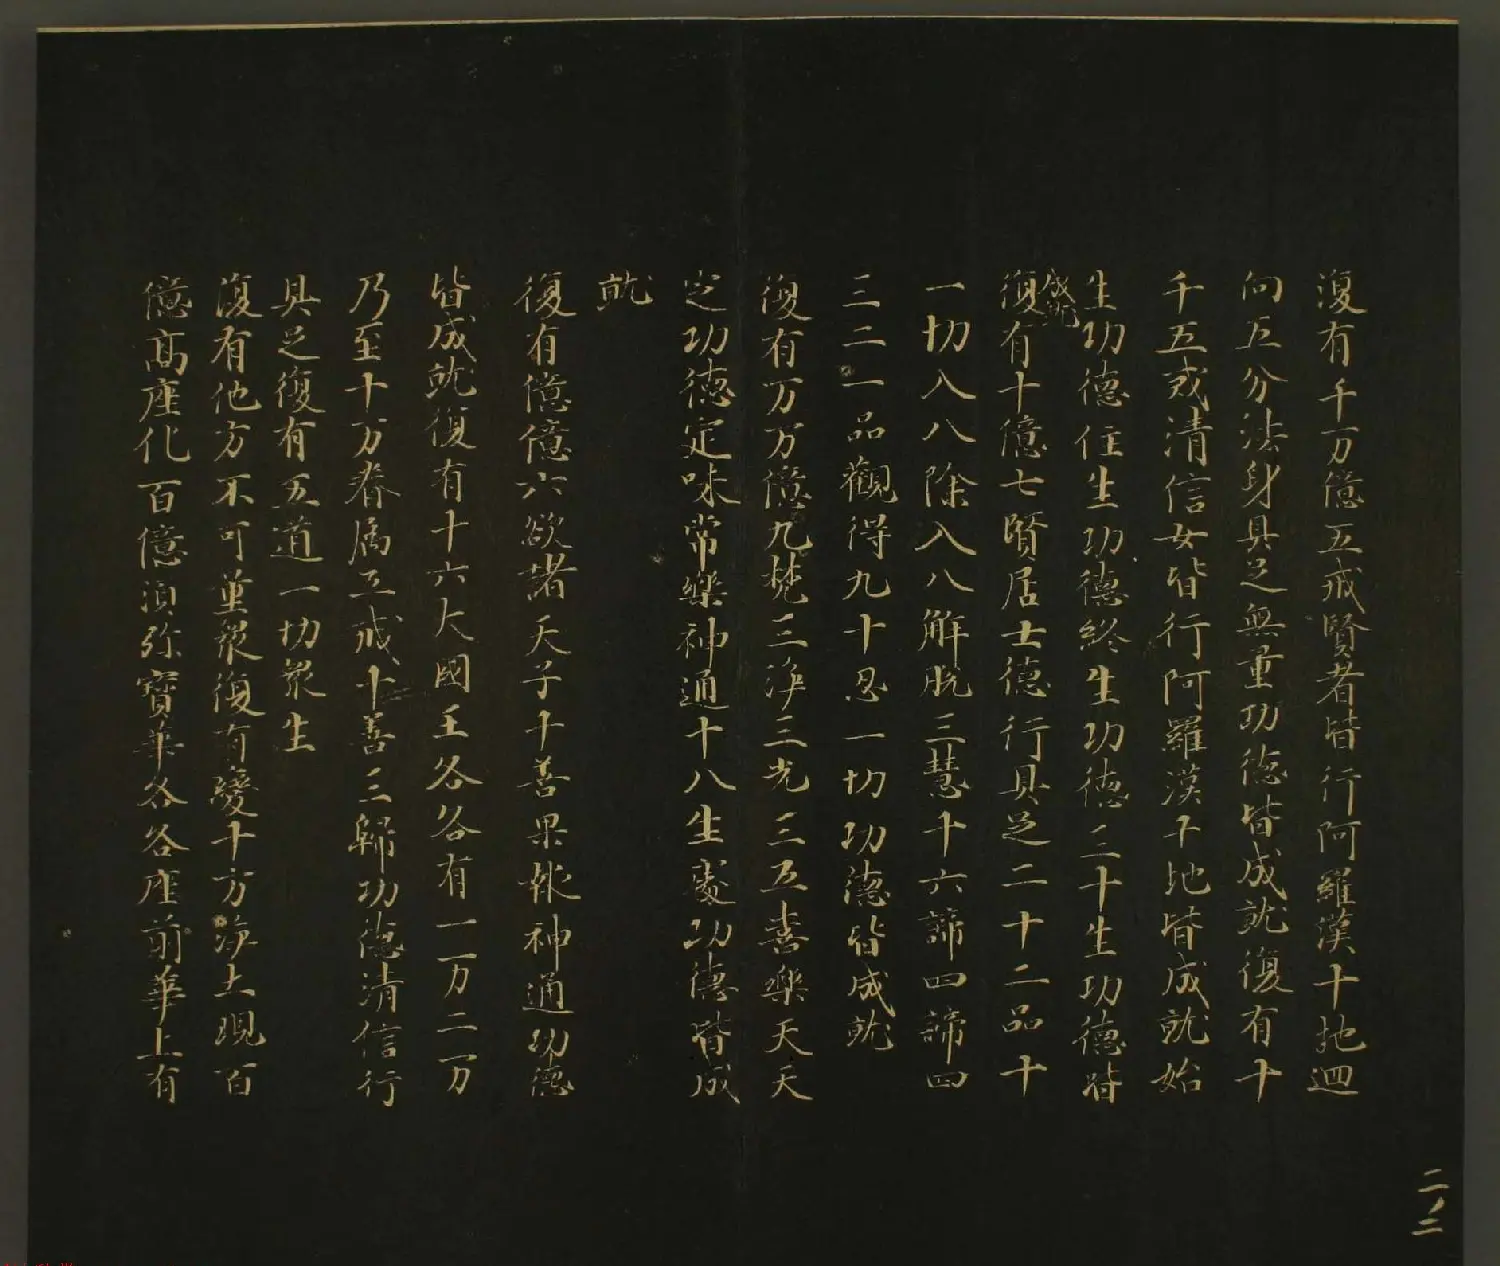 復有千万億五戒賢者皆行阿羅漢十地迴
向五分法身具足無量功德皆成就復有十
千五戒清信女皆行阿羅漢十地皆成就始
生功德住生功德終生功德三十生功德皆
成就
復有十億七賢居士德行具足二十二品十
一切入八除入八解脱三慧十六諦四諦四
三二一品觀得九十忍一切功德皆成就
復有万万億九梵三淨三光三五喜樂天天
定功德定味常樂神通十八生處功德皆成
就
復有億億六欲諸天子十善果報神通功德
皆成就復有十六大國王各各有一万二万
乃至十万眷属五戒十善三歸功德清信行
具足復有五道一切衆生
復有他方不可量衆復有變十方淨土現百
億高座化百億湏弥寳華各各座前華上有
二ノ二